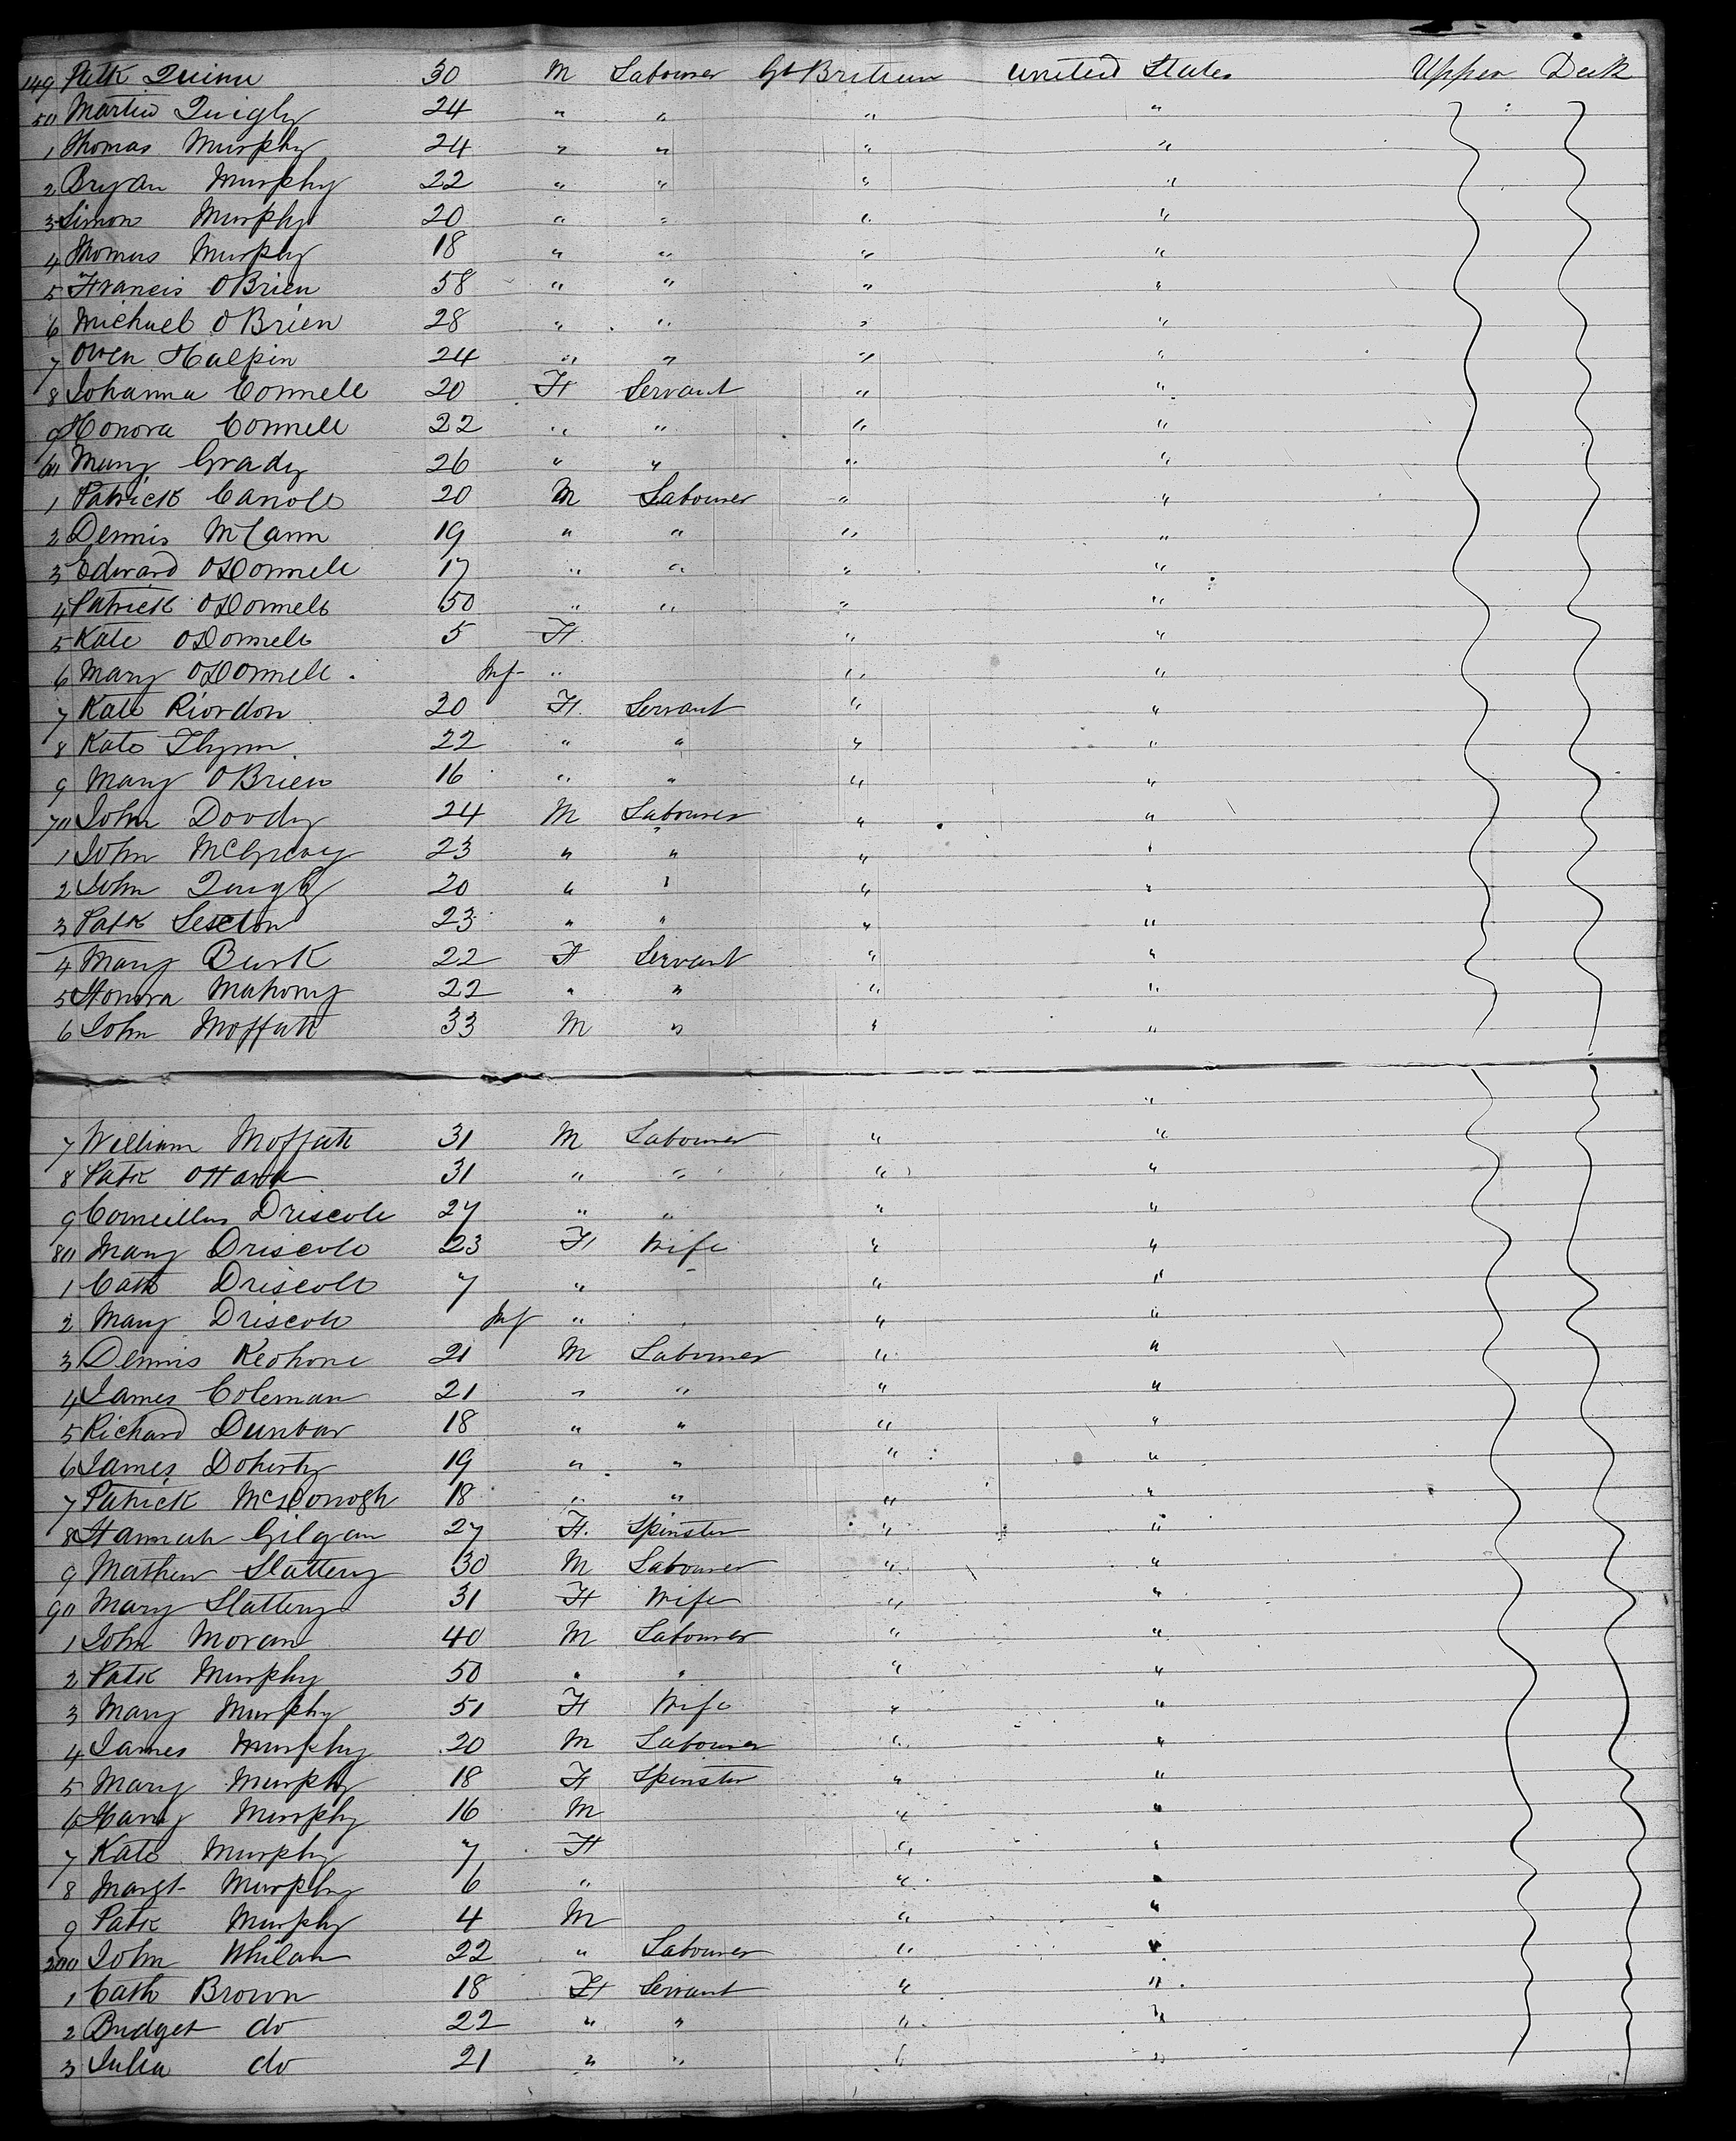 149 Patk Quinn 30 M Labourer Gt Britain United States Upper Deck
50 Martin Quigly 24 " " " "
1 Thomas Murphy 24 " " " "
2 Bryan Murphy 22 " " " "
3 Simon Murphy 20 " " " "
4 Thomas Murphy 18 " " " "
5 Francis OBrien 58 " " " "
6 Michael OBrien 28 " " " "
7 Owen Halpin 24 " " " "
8 Johanna Connell 20 F Servant " "
9 Honora Connell 22 " " " "
60 Mary Grady 26 " " " "
1 Patrick Carroll 20 M Labourer " "
2 Dennis McCann 19 " " " "
3 Edward ODonnell 17 " " " "
4 Patrick ODonnell 50 " " " "
5 Kate ODonnell 5 F " "
6 Mary ODonnell Inf " " "
7 Kate Riordon 20 F Servant " "
8 Kate Flynn 22 " " " "
9 Mary OBrien 16 " " " "
70 John Doody 24 M Labourer " "
1 John 23 " " " "
2 John Quigly 20 " " " "
3 Patk Sexton 23 " " " "
4 Mary Burk 22 F Servant " "
5 Honora Mahony 22 " " " "
6 John Moffatt 33 M " " "
"
7 William Moffatt 31 M Labourer " "
8 Patk OHara 31 " " " "
9 Corneillus Driscoll 27 " " " "
80 Mary Driscoll 23 F Wife " "
1 Cath Driscoll 7 " " "
2 Mary Driscoll Inf " " "
3 Dennis Keohone 21 M Labourer " "
4 James Coleman 21 " " " "
5 Richard Dunbar 18 " " " "
6 James Doherty 19 " " " "
7 Patrick McDonogh 18 " " " "
8 Hannah Gilgan 27 F Spinster " "
9 Mathew Slattery 30 M Labourer " "
90 Mary Slattery 31 F Wife " "
1 John Moran 40 M Labourer " "
2 Patk Murphy 50 " " " "
3 Mary Murphy 51 F Wife " "
4 James Murphy 20 M Labourer " "
5 Mary Murphy 18 F Spinster " "
6 Harry Murphy 16 M " "
7 Kate Murphy 7 F " "
8 Margt Murphy 6 " " "
9 Patk Murphy 4 M " "
200 John Whilan 22 " Labourer " "
1 Cath Brown 18 F Servant " "
2 Bridget do 22 " " " "
3 Julia do 21 " " " "